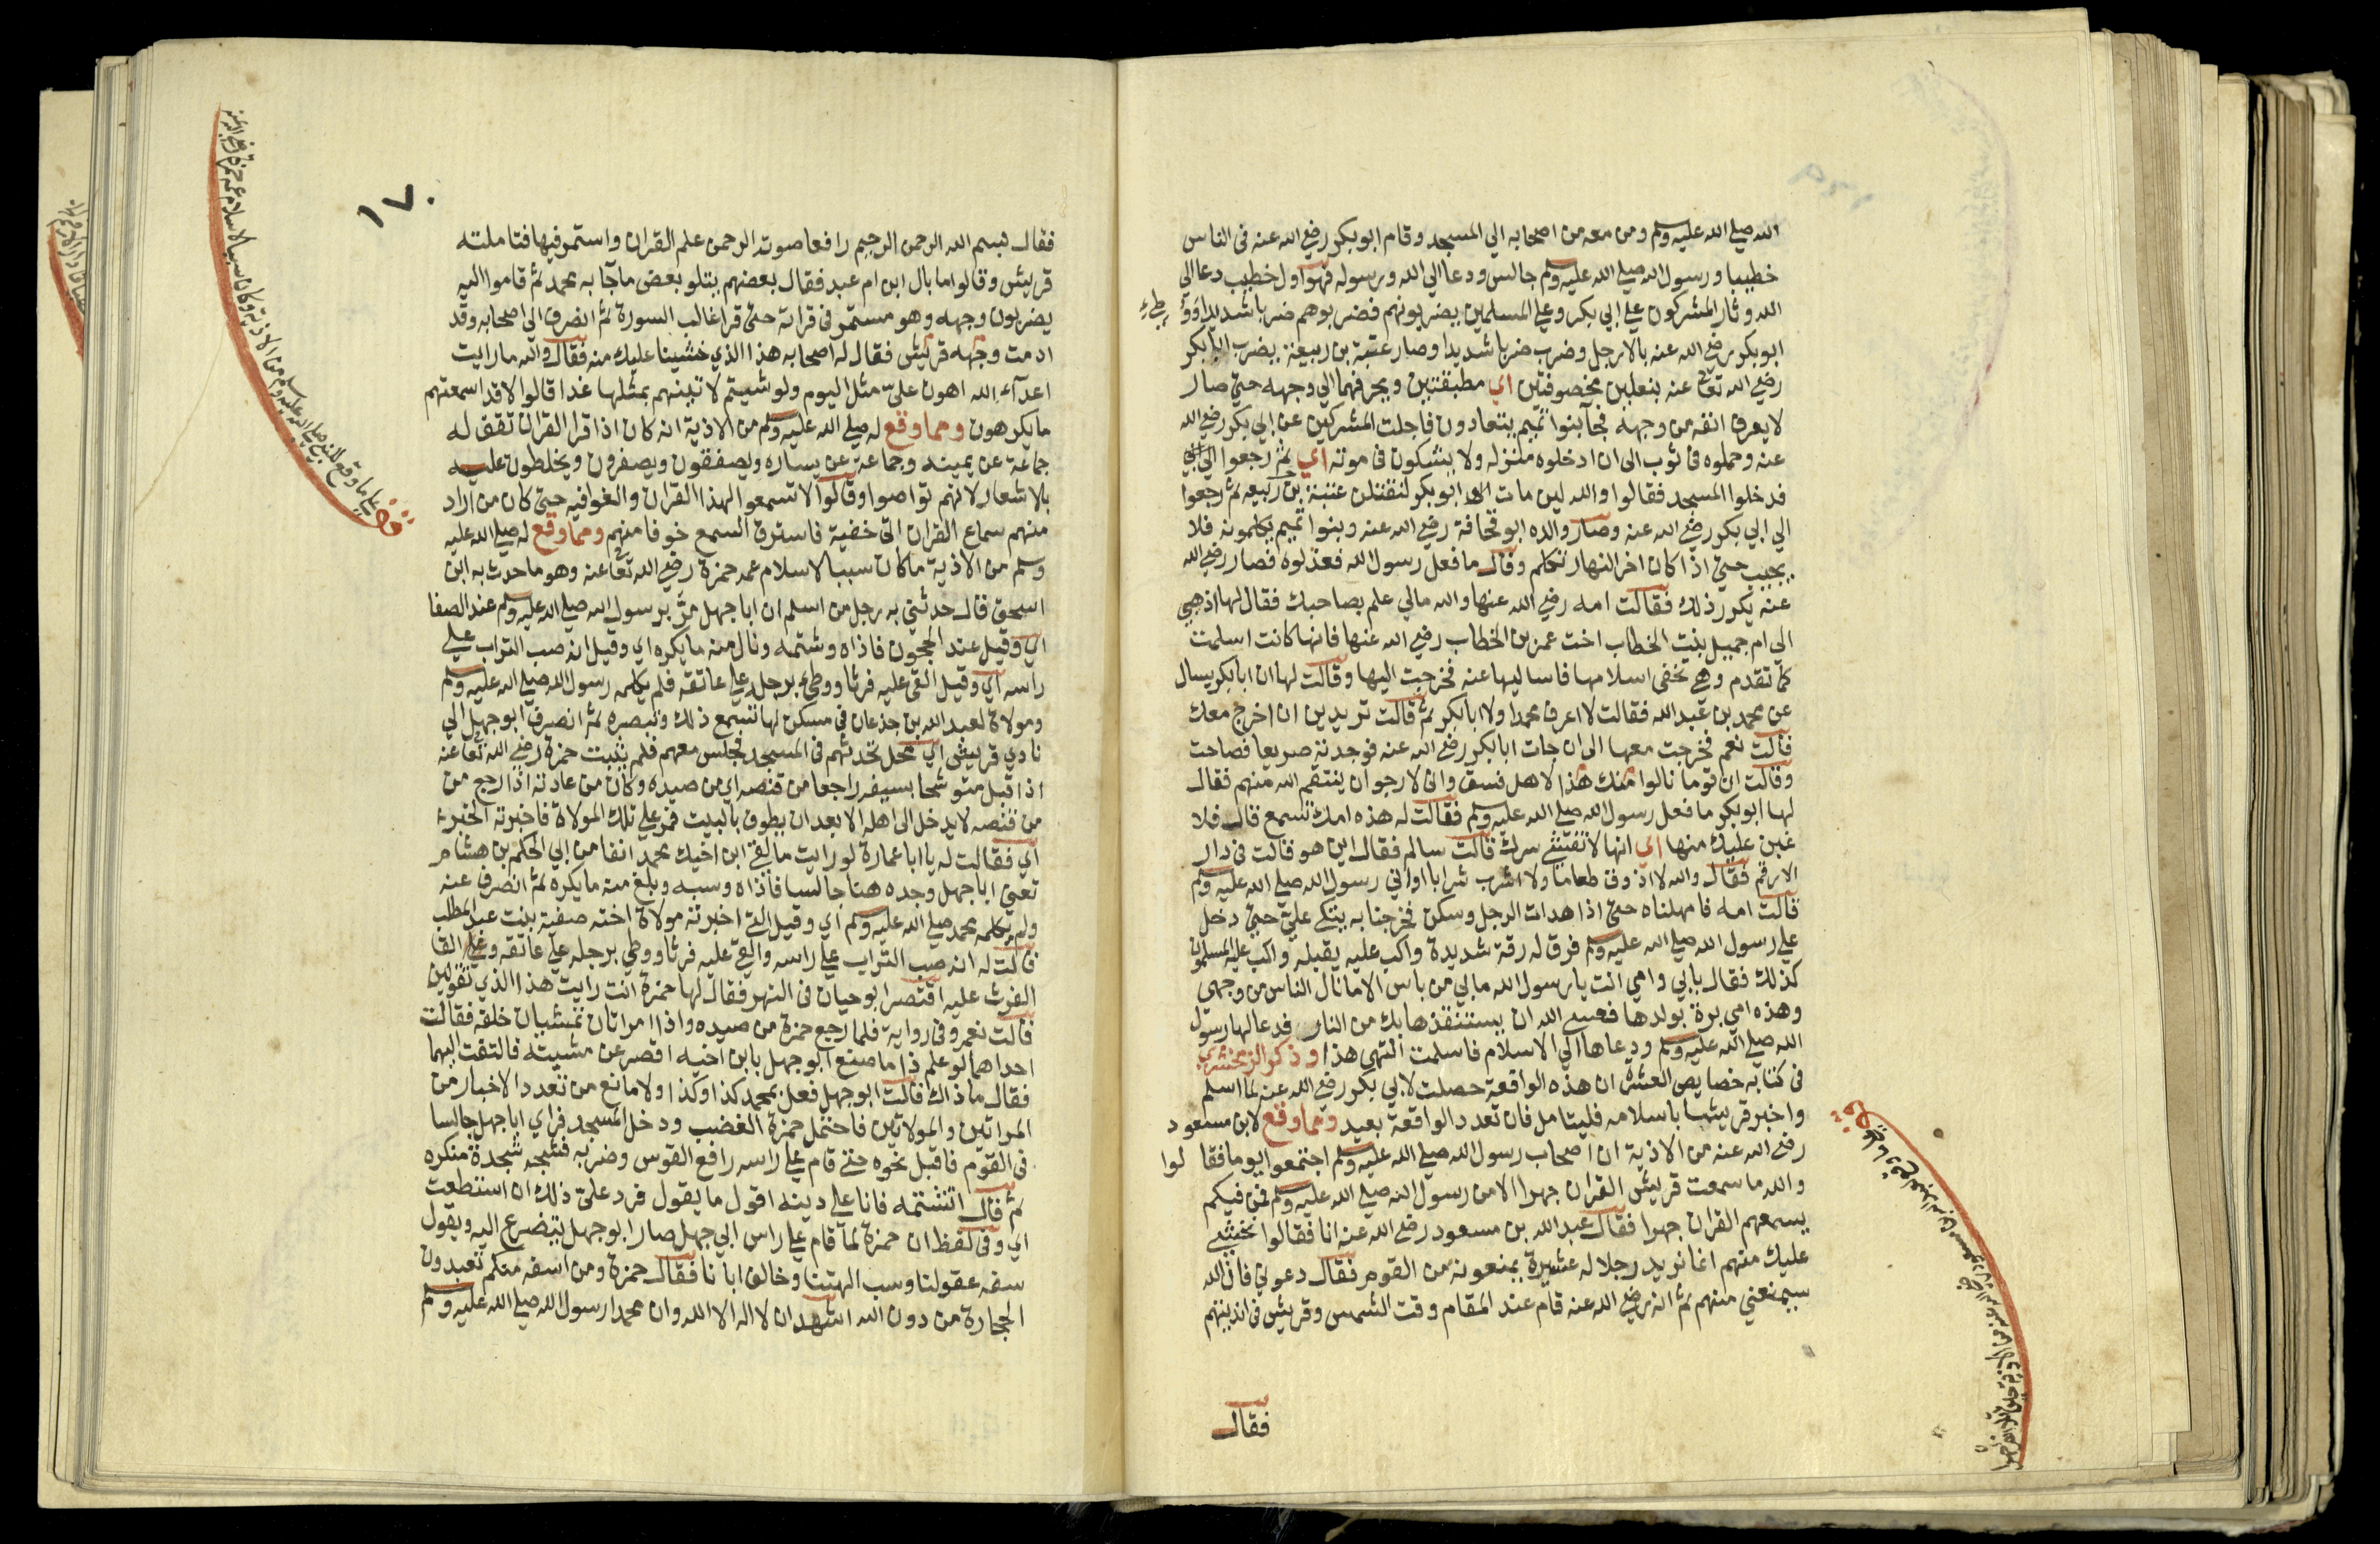 الله صلي الله عليه وسلم ومن معه من اصحابه الي المسجد وقام ابو بكر رضي الله عنه في الناس
خطيبا ورسول الله صلي الله عليه وسلم جالس ودعا الي الله ورسوله فهو اول خطيب دعا الي
الله وثار المشركون علي ابي بكر وعلي المسلمين يضربونهم فضربوهم ضربا شديدا ووطيء
ابو بكر رضي الله عنه بالارجل وضرب ضربا شديدا وصار عتبة بن ربيعة يضرب ابا بكر
رضي الله تعالي عنه بنعلين مخصوفتين اي مطبقتين ويحرفهما الي وجهه حتي صار
لا يعرف انفه من وجهه فجآ بنوا تميم يتعادون فاجلت المشركين عن ابي بكر رضي الله
عنه وحملوه في ثوب الي ان ادخلوه منزله ولا يشكون في موته اي ثم رجعوا الي
فدخلوا المسجد فقالوا والله لين مات ابو بكر لنقتلن عتبة بن ربيعه ثم رجعوا
الي ابي بكر رضي الله عنه وصار والده ابو قحافة رضي الله عنه وبنوا تميم يكلمونه فلا
يجيب حتي اذا كان اخر النهار تكلم وقال ما فعل رسول الله فعذلوه فصار رضي الله
عنه يكرر ذلك فقالت امه رضي الله عنها والله مالي علم بصاحبك فقال لها اذهبي
الي ام جميل بنت الخطاب اخت عمر بن الخطاب رضي الله عنها فانها كانت اسلمت
كما تقدم وهي تخفي اسلامها فاساليها عنه فخرجت اليها وقالت لها ان ابا بكر يسال
عن محمد بن عبد الله فقالت لا اعرف محمدا ولا ابا بكر ثم قالت تريدين ان اخرج معك
قالت نعم فخرجت معها الي ان جات ابا بكر رضي الله عنه فوجدته صريعا فصاحت
وقالت ان قوما نالوا منك هذا لاهل فسق واني لارجوا ان ينتقم الله منهم فقال
لها ابو بكر ما فعل رسول الله صلي الله عليه وسلم فقالت له هذه امك تسمع قال فلا
عين عليك منها اي انها لا تفشي سرك قالت سالم فقال اين هو قالت في دار
الارقم فقال والله لا اذوق طعاما ولا اشرب شرابا او اتي رسول الله صلي الله عليه وسلم
قالت امه فامهلناه حتي اذا هدات الرجل وسكن فخرجنا به يتكي علي حتي دخل
علي رسول الله صلي الله عليه وسلم فرق له رقة شديدة واكب عليه يقبله واكب عليه المسلمون
كذلك فقال بابي وامي انت يا رسول الله ما بي من باس الا ما نال الناس من وجهي
وهذه امي برة بولدها فعسي الله ان يستنقذها بك من النار فدعا لها رسول
الله صلي الله عليه وسلم ودعاها الي الاسلام فاسلمت انتهي هذا وذكر الزمخشري
في كتابه خصايص العشرة ان هذه الواقعة حصلت لابي بكر رضي الله عنه لما اسلم
واخبر قريشا باسلامه فليتامل فان تعدد الواقعة بعيد ومما وقع لابن مسعود
رضي الله عنه من الاذية ان اصحاب رسول الله صلي الله عليه وسلم اجتمعوا يوما فقالوا
والله ما سمعت قريش القران جهرا الا من رسول الله صلي الله عليه وسلم فمن فيكم
يسمعهم القران جهرا فقال عبد الله بن مسعود رضي الله عنه انا فقالوا نخشي
عليك منهم انما نريد رجلا له عشيرة يمنعونه من القوم فقال دعوني فان الله
سيمنعني منهم ثم انه رضي الله عنه قام عند المقام وقت الشمس وقريش في انديتهم
فقال
١٧٠
فقال بسم الله الرحمن الرحيم رافعا صوته الرحمن علم القران واستمر فيها فتاملته
قريش وقالوا ما بال ابن ام عبد فقال بعضهم يتلو بعض ما جآ به محمد ثم قاموا اليه
يضربون وجهه وهو مستمر في قراته حتي قرا غالب السورة ثم انصرف الي اصحابه وقد
ادمت وجهه قريش فقال له اصحابه هذا الذي خشينا عليك منه فقال والله ما رايت
اعدآء الله اهون علي مثل اليوم ولو شيتم لاتينهم بمثلها غدا قالوا لا قد اسمعتهم
ما يكرهون ومما وقع له صلي الله عليه وسلم من الاذية انه كان اذا قرا القران تقف له
جماعة عن يمينه وجماعة عن يساره ويصفقون ويصفرون ويخلطون عليه
بالاشعار لانهم تواصوا وقالوا لا تسمعوا لهذا القران والغوا فيه حتي كان من اراد
منهم سماع القران اتي خفية فاسترق السمع خوفا منهم ومما وقع له صلي الله عليه
وسلم من الاذية ما كان سببا لاسلام عمه حمزة رضي الله تعالي عنه وهو ما حدث به ابن
اسحق قال حدثني به رجل من اسلم ان ابا جهل مر برسول الله صلي الله عليه وسلم عند الصفا
اي وقيل عند الحجون فاذاه وشتمه ونال منه ما يكره اي وقيل انه صب التراب علي
راسه اي وقيل القي عليه فرثا ووطيء برجله علي عاتقه فلم يكلمه رسول الله صلي الله عليه وسلم
ومولاة لعبد الله بن جذعان في مسكن لها تسمع ذلك وتبصره ثم انصرف ابو جهل الي
نادي قريش اي محل تحدثهم في المسجد فجلس معهم فلم يلبث حمزة رضي الله تعالي عنه
اذ اقبل متوشحا بسيفه راجعا من قنصه اي من صيده وكان من عادته اذا رجع من
من قنصه لا يدخل الي اهله الا بعد ان يطوف بالبيت فمر علي تلك المولاة فاخبرته الخبر
اي فقالت له يا ابا عمارة لو رايت ما لقي ابن اخيك محمد انفا من ابي الحكم بن هشام
تعني ابا جهل وجده هنا جالسا فاذاه وسبه وبلغ منه ما يكره ثم انصرف عنه
ولم يكلمه محمد صلي الله عليه وسلم اي وقيل التي اخبرته مولاة اخته صفية بنت عبد المطلب
قالت له انه صب التراب علي راسه والقي عليه فرثا ووطي برجله علي عاتقه وعلي القا
الفرث عليه اقتصر ابو حيان في النهر فقال لها حمزة انت رايت هذا الذي تقولين
قالت نعم وفي رواية فلما رجع حمزة من صيده واذا امراتان تمشيان خلفه فقالت
احداهما لو علم ذا ما صنع ابو جهل بابن اخيه اقصر عن مشيته فالتفت اليهما
فقال ما ذاك قالت ابو جهل فعل بمحمد كذا وكذا ولا مانع من تعدد الاخبار من
المراتين والمولاتين فاحتمل حمزة الغضب ودخل المسجد فراي ابا جهل جالسا
في القوم فاقبل نحوه حتي قام علي راسه رافع القوس وضربه فشجه شجدة منكره
ثم قال اتشتمه فانا علي دينه اقول ما يقول فرد علي ذلك ان استطعت
اي وفي لفظ ان حمزة لما قام علي راس ابي جهل صار ابو جهل يتضرع اليه ويقول
سفه عقولنا وسب الهتنا وخالف ابانا فقال حمزة ومن اسفه منكم تعبدون
الحجارة من دون الله اشهد ان لا اله الا الله وان محمدا رسول الله صلي الله عليه وسلم